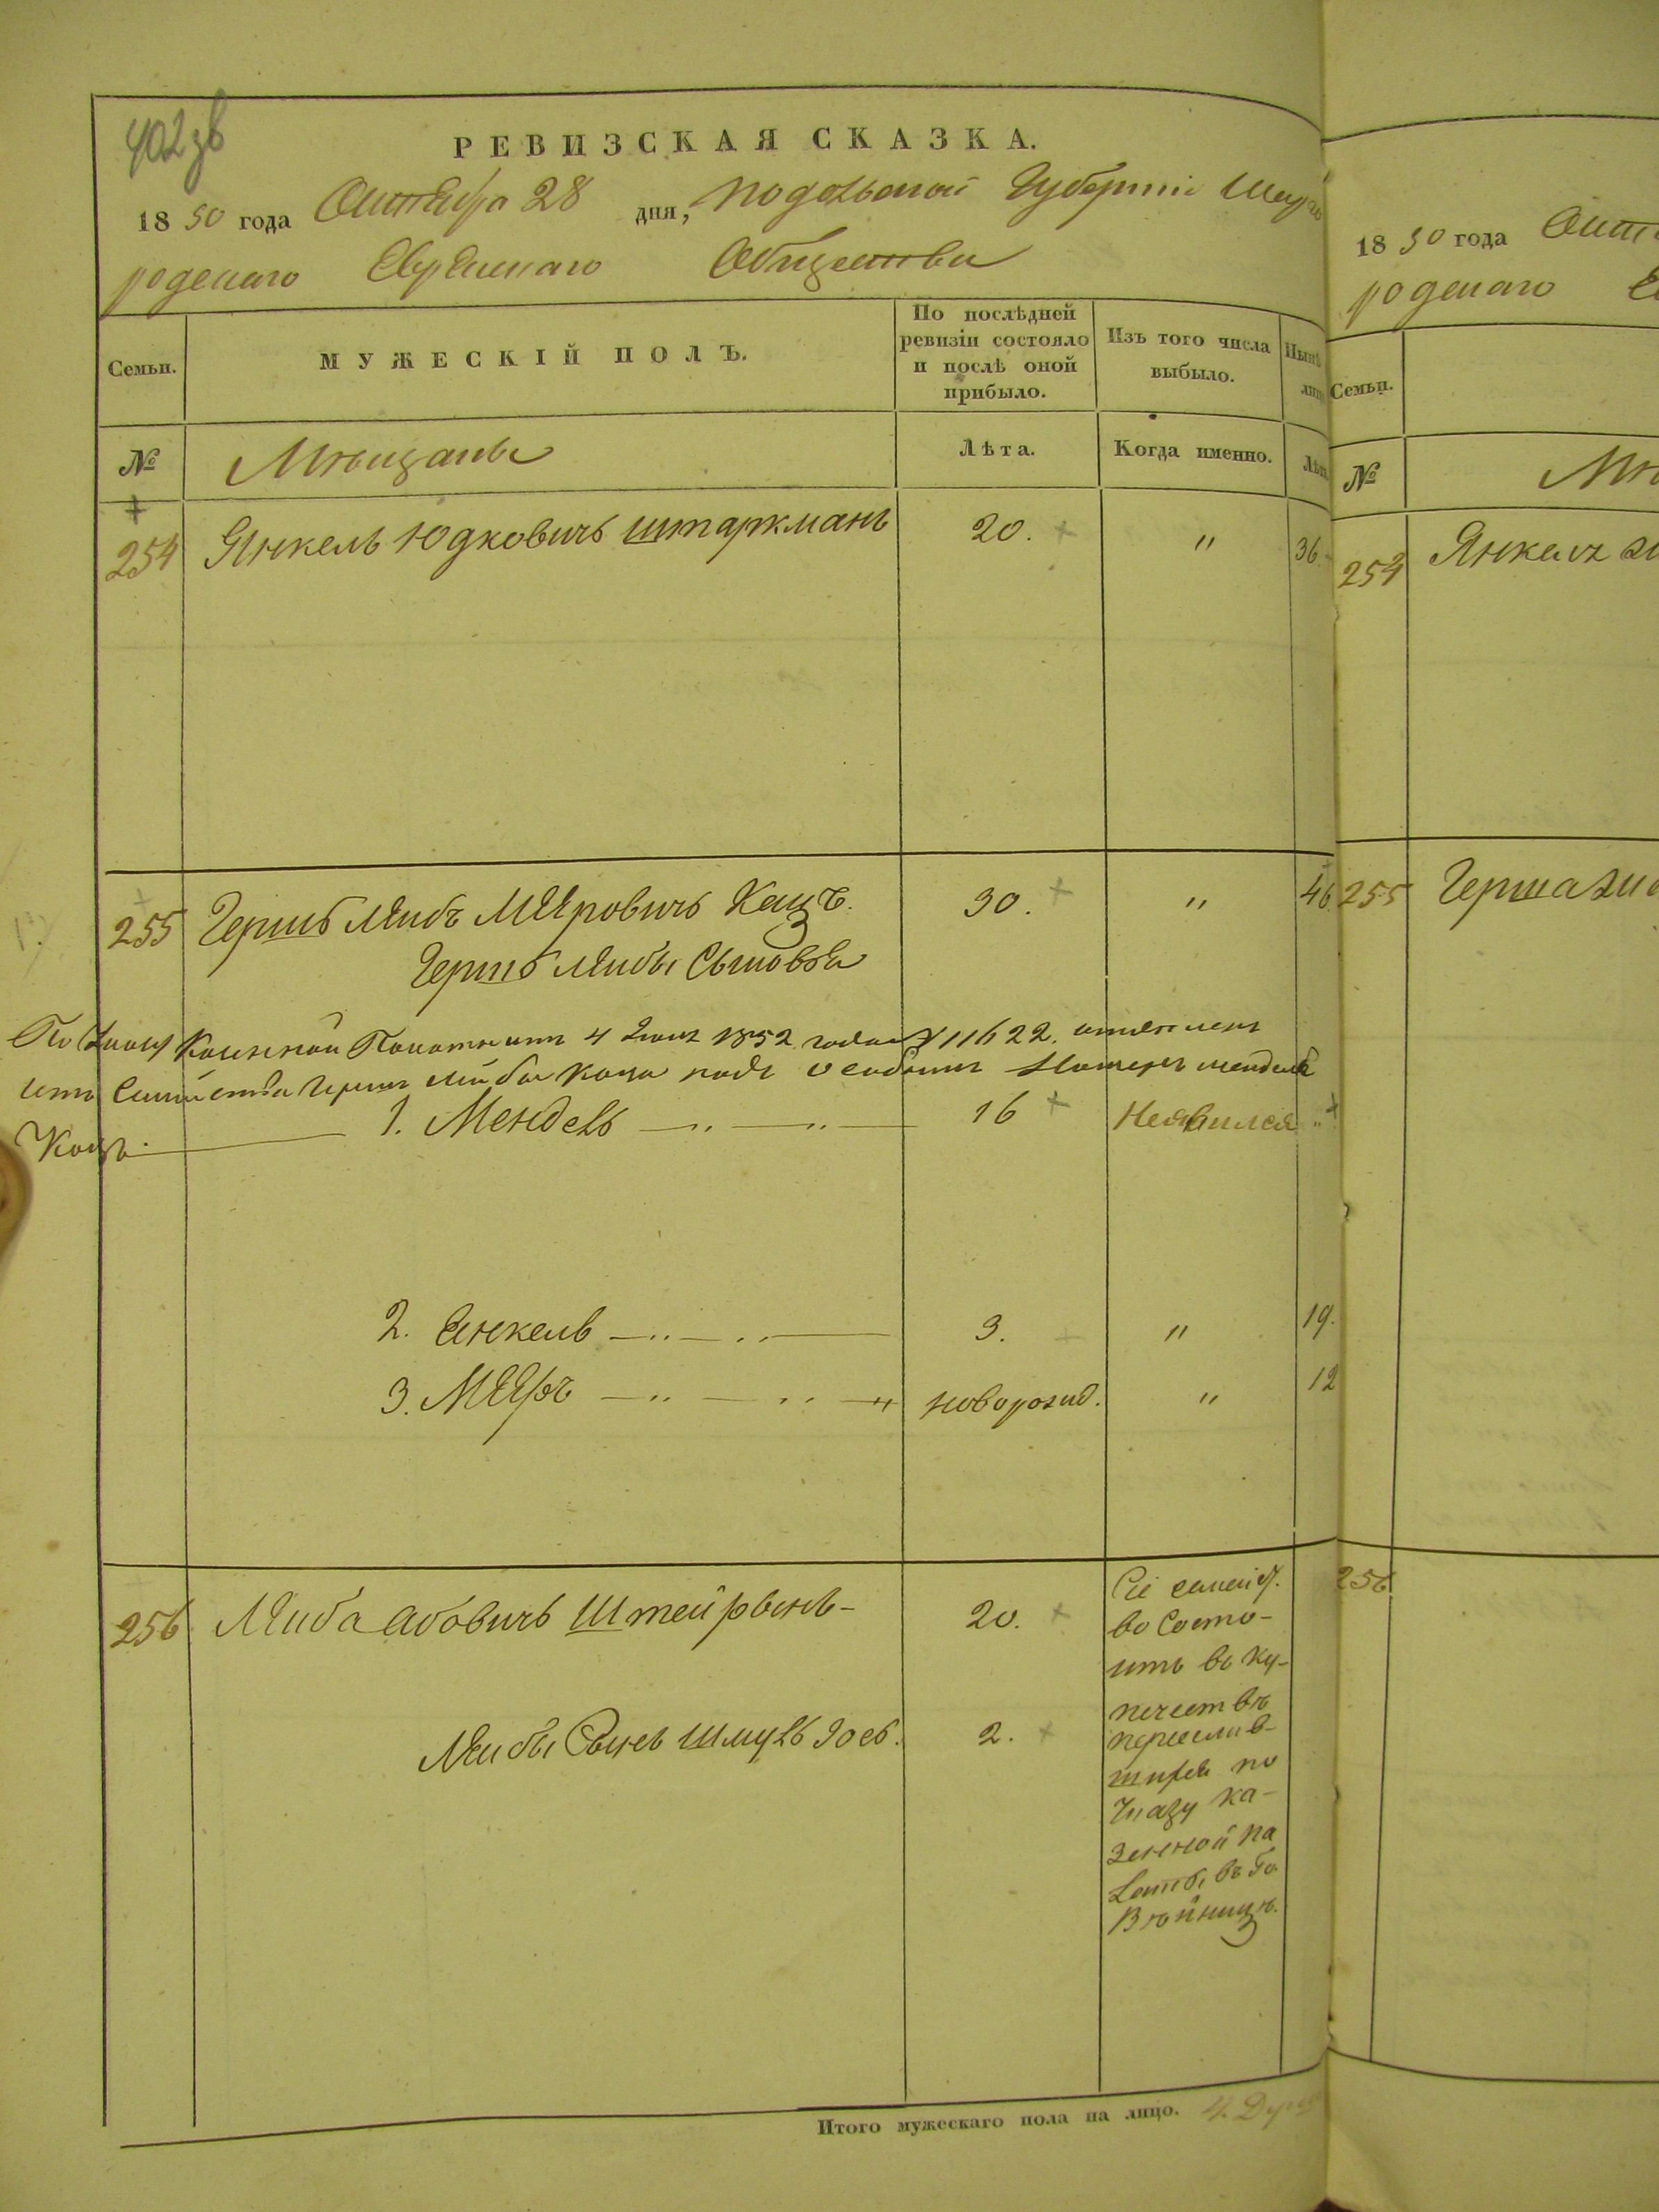 402 зв
РЕВИЗСКАЯ СКАЗКА.
1850 года Октября 28 дня, Подольской Губерніи Шарго
родскаго Еврейскаго Общества
Семьи.
МУЖЕСКІЙ ПОЛЪ.
По послѣдней
ревизіи состояло
и послѣ оной
прибыло.
Изъ того числа
выбыло.
№
Мѣщане
Лѣта.
Когда именно.
254 Янкель Юдковичъ Штаркманъ 20. " 36
255 Гершъ Лейбъ Мееровичъ Кацъ. 30. " 46
Гершъ Лейбы Сыновья
По Указу Казенной Палаты отъ 4 1852 года № 11622. отделенъ
отъ Семейства Герша Лейбы Каца подъ особымъ Номеромъ Мендель
Кацъ.
1. Мендель 16 Неявился "
2. Янкель 3. " 19.
3. Мееръ новорожд. " 12
256 Лейба Абовичъ Штейрвинъ 20.
Лейбы Сынъ Шмуль Зось. 2.
Сіе семейст.
во Состо-
итъ въ Ку-
печествѣ
переселив-
шись по
Указу Ка-
зенной Па
латы, въ
Итого мужескаго пола на лицо. 4. Душ
18 50 года Окт
родскаго Е
Семьи.
№
254 Янкеля
255 Герша
256